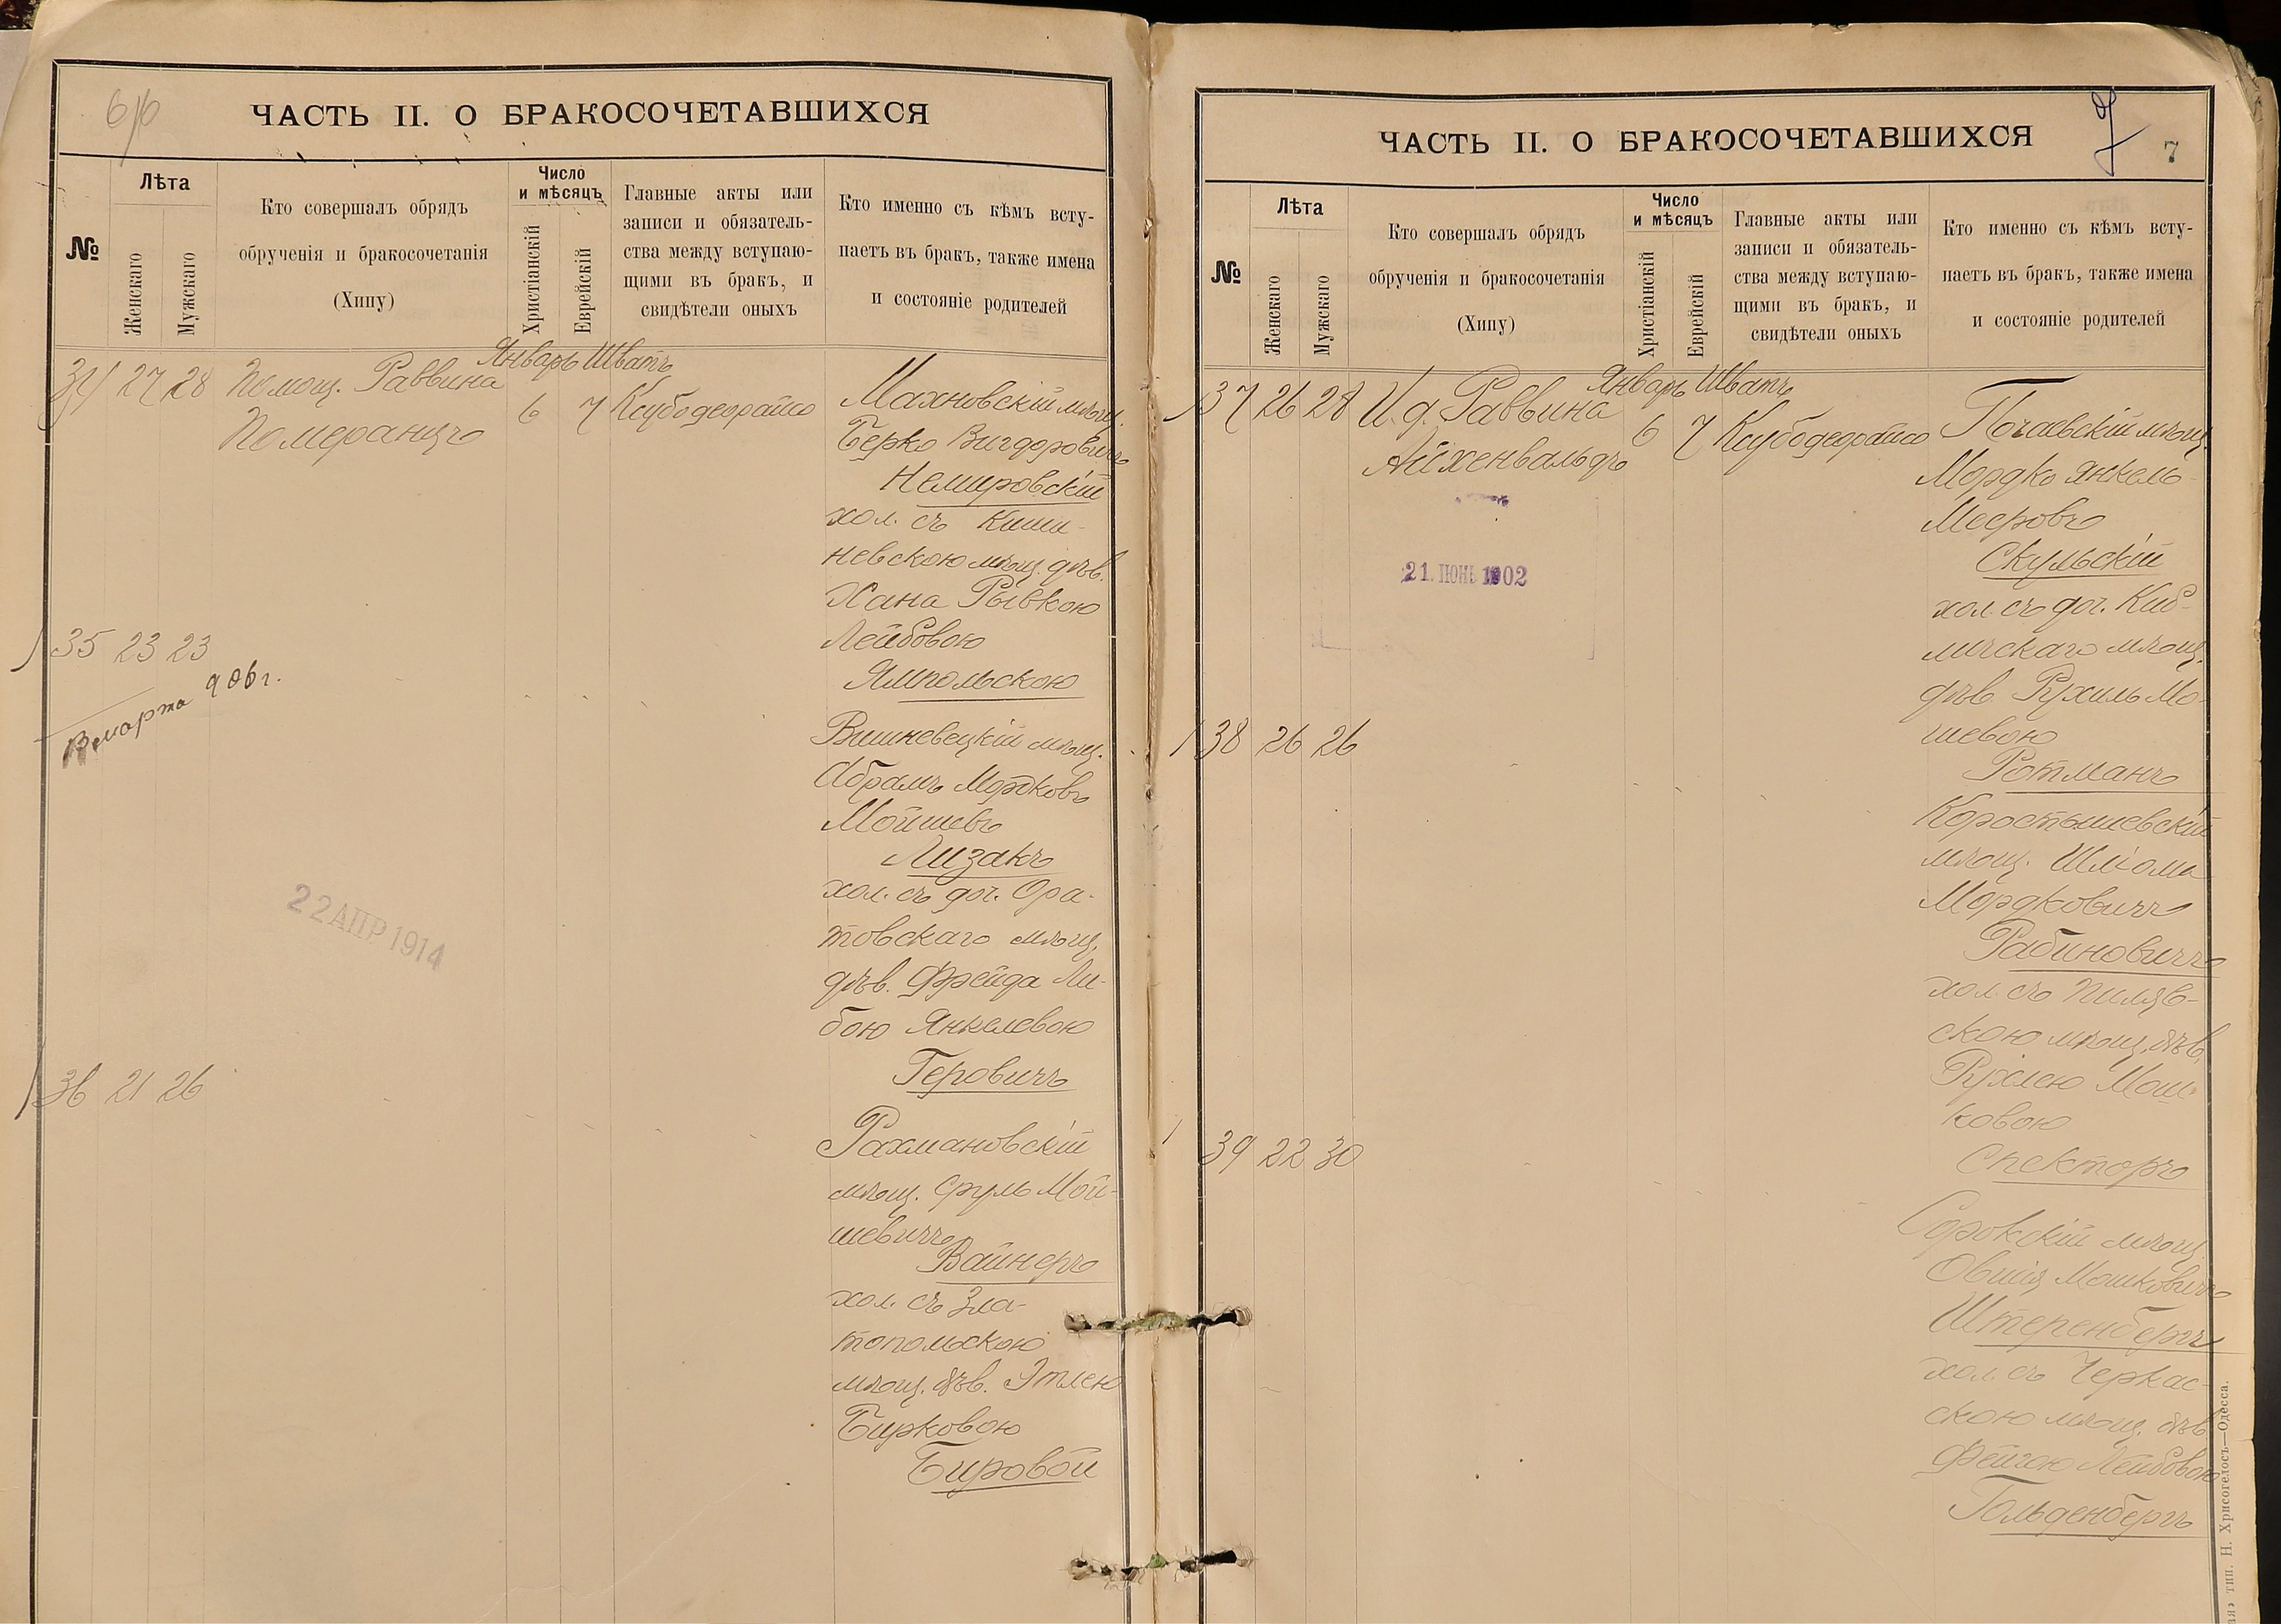 6/6
ЧАСТЬ II. О БРАКОСОЧЕТАВШИХСЯ
№
Лѣта
Женскаго
Мужскаго
Кто совершалъ обрядъ
обрученія и бракосочетанія
(Хипу)
Число
и мѣсяцъ
Христіанскій
Еврейскій
Главные акты или
записи и обязатель-
ства между вступаю-
щими въ бракъ, и
свидѣтели оныхъ
Кто именно съ кѣмъ всту-
паетъ въ бракъ, также имена
и состояніе родителей
Январь Шватъ
34 27 28 Помощ. Раввина 6 7 Ксубодеорайсо
Померанцъ
Махновскій мѣщ.
Берко Вигдоровичъ
Немировскій
хол. съ Киши-
невскою мѣщ. дѣв.
Хана Рывкою
Лейбовою
Ямпольскою
35 23 23
марта 906 г.
Вишневецкій мѣщ.
Абрамъ Мордковъ
Мойшевъ
Лизакъ
хол. съ доч. Ора-
товскаго мѣщ.
дѣв. Фрейда Ли-
бою Янкелевою
Геровичъ
22 АПР 1914
36 21 26
Рахмановскій
мѣщ. Сруль Мой-
шевичъ
Вайнеръ
хол. съ Зла-
топольскою
мѣщ. дѣв. Этлею
Бирковою
Бировой
7
7
ЧАСТЬ II. О БРАКОСОЧЕТАВШИХСЯ
№
Лѣта
Женскаго
Мужскаго
Кто совершалъ обрядъ
обрученія и бракосочетанія
(Хипу)
Число
и мѣсяцъ
Христіанскій
Еврейскій
Главные акты или
записи и обязатель-
ства между вступаю-
щими въ бракъ, и
свидѣтели оныхъ
Кто именно съ кѣмъ всту-
паетъ въ бракъ, также имена
и состояніе родителей
Январь Шватъ
37 26 28 И. д. Раввина 6 7 Ксубодеорайсо
Айхенвальдъ
21. ІЮНЬ 1902
Почаевскій мѣщ.
Мордко Янкель-
Мееровъ
Скульскій
хол. съ доч. Киб-
личскаго мѣщ.
дѣв. Рухиль Мо-
шевою
Ротманъ
38 26 26
Коростышевскій
мѣщ. Шліома
Мордковичъ
Рабиновичъ
хол. съ Пиляв-
скою мѣщ. дѣв.
Рухлею Мош-
ковою
Спекторъ
39 22 30
Сорокскій мѣщ.
Овшія Мошковичъ
Штеренбергъ
хол. съ Черкас-
скою мѣщ. дѣв.
Фейгою Лейбовою
Гольденбергъ
тип. Н. Хрисогелосъ—Одесса.